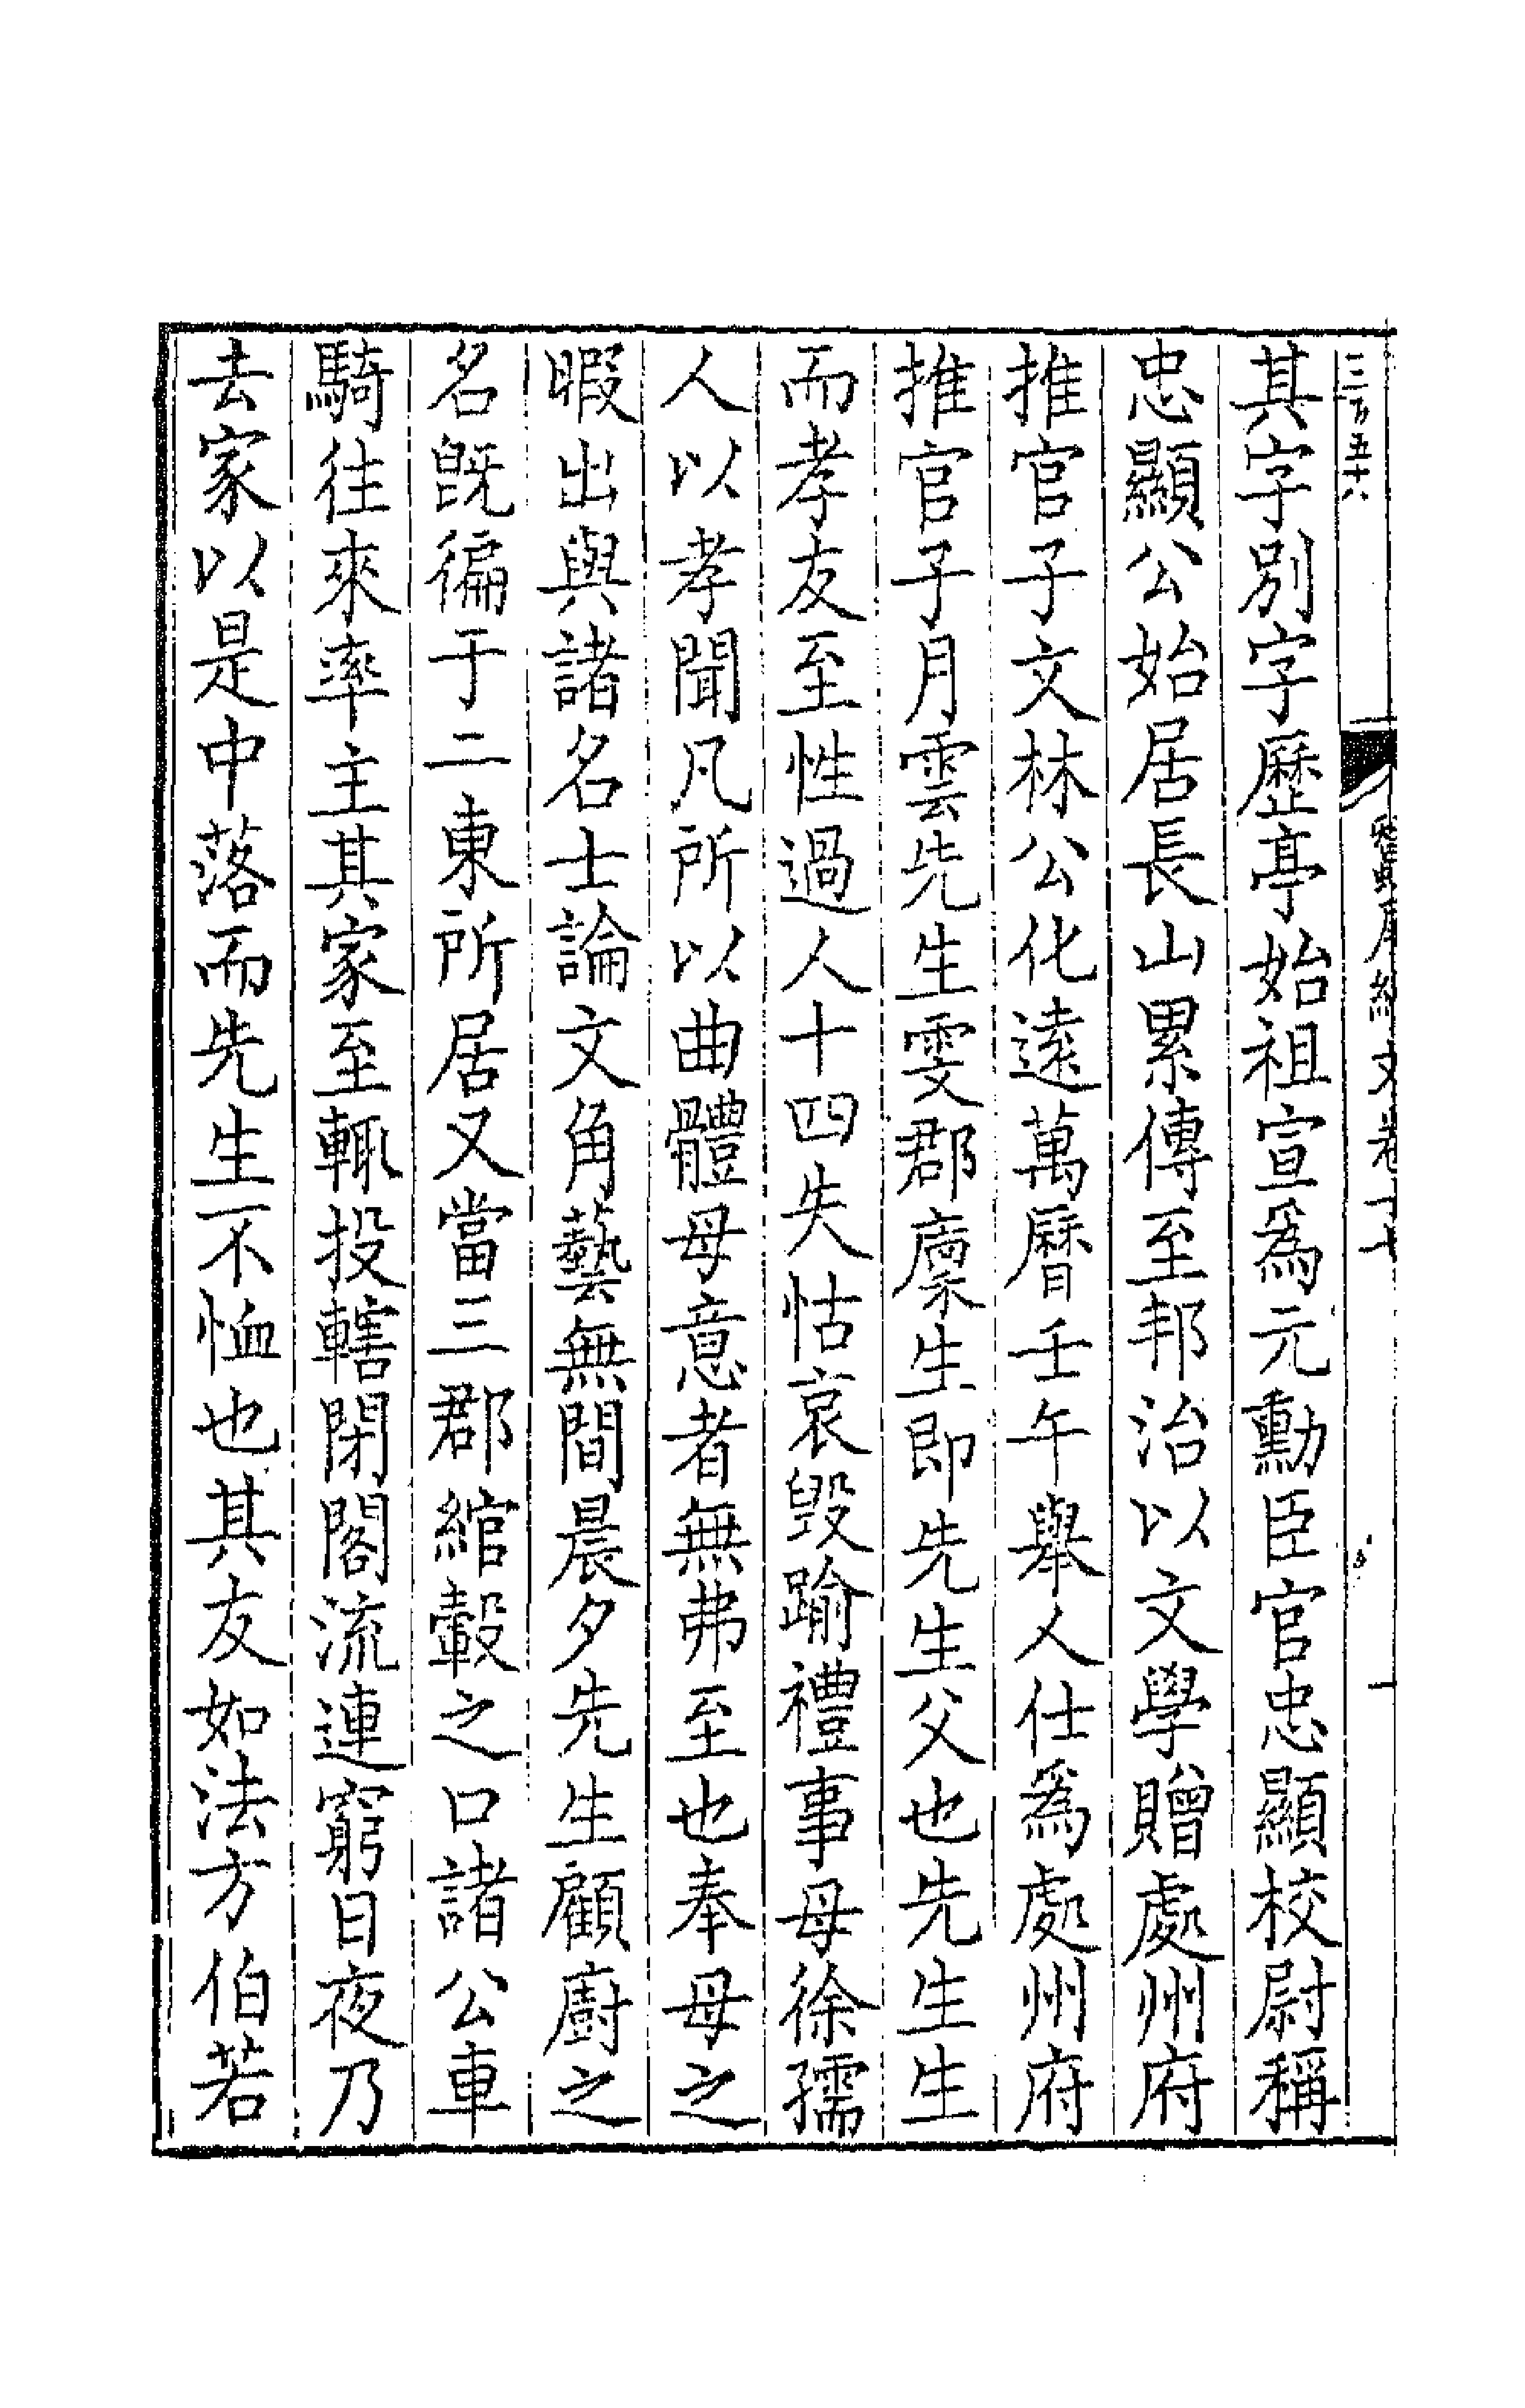 三百五十八
其字別字歷亭始祖宣爲元勳臣官忠顯校尉稱
忠顯公始居長山累傳至邦治以文學贈處州府
推官子文林公化遠萬曆壬午舉人仕爲處州府
推官子月雲先生雯郡廩生即先生父也先生生
而孝友至性過人十四失怙哀毀踰禮事母徐孺
人以孝聞凡所以曲體母意者無弗至也奉母之
暇出與諸名士論文角藝無間晨夕先生顧廚之
名旣徧于二東所居又當三郡綰轂之口諸公車
騎往來率主其家至輒投轄閉閣流連窮日夜乃
去家以是中落而先生不恤也其友如法方伯若